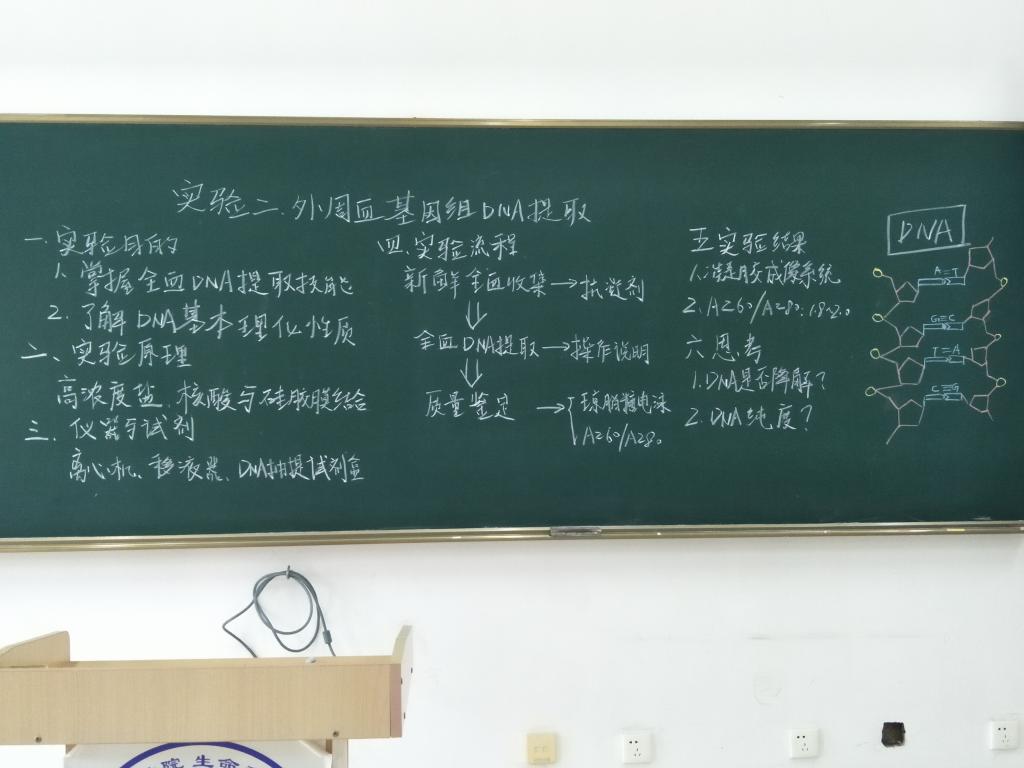 实验二、外周血基因组DNA提取
一、实验目的
1. 掌握全血DNA提取技能
2. 了解DNA基本理化性质
二、实验原理
高浓度盐,核酸与硅胶膜结合
三、仪器与试剂
离心机、移液器、DNA抽提试剂盒
四、实验流程
新鲜全血收集→抗凝剂
全血DNA提取→操作说明
质量鉴定→琼脂糖电泳
A260/A280
五实验结果
1.凝胶成像系统
2.A260/A280:1.8~2.0
六思考
1.DNA是否降解?
2.DNA纯度?
DNA
A=T
G≡C
T=A
C≡G
院 生命